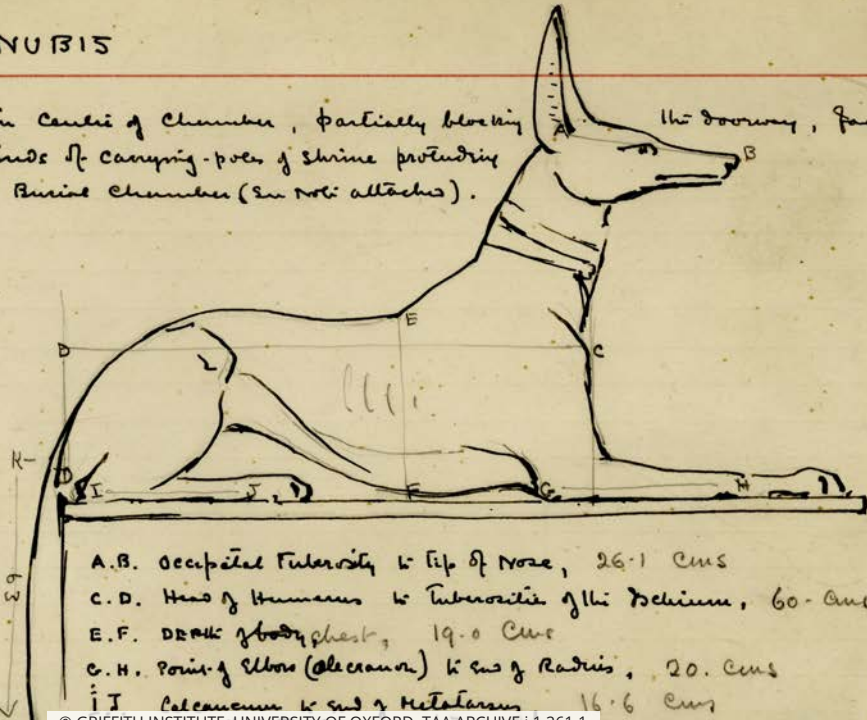 NUBIS
in Centre of Chamber, partially blocking the doorway,
ends of carrying-poles of shrine protruding
Burial Chamber (See Note attached).
A
B
E
D
C
K-
D
I
J.
F
G
H
63
A.B. Occipital Tuberosity to tip of Nose, 26.1 cms
C.D. Head of Humerus to Tuberosities of the Ischium, 60- cms
E.F. Depth of body chest, 19.0 cms
G.H. Point of Elbow (olecranon) to end of Radius, 20. cms
I J Calcaneum to end of Metatarsus 16.6 cms
© GRIFFITH INSTITUTE, UNIVERSITY OF OXFORD, TAA ARCHIVE i.1.261.1